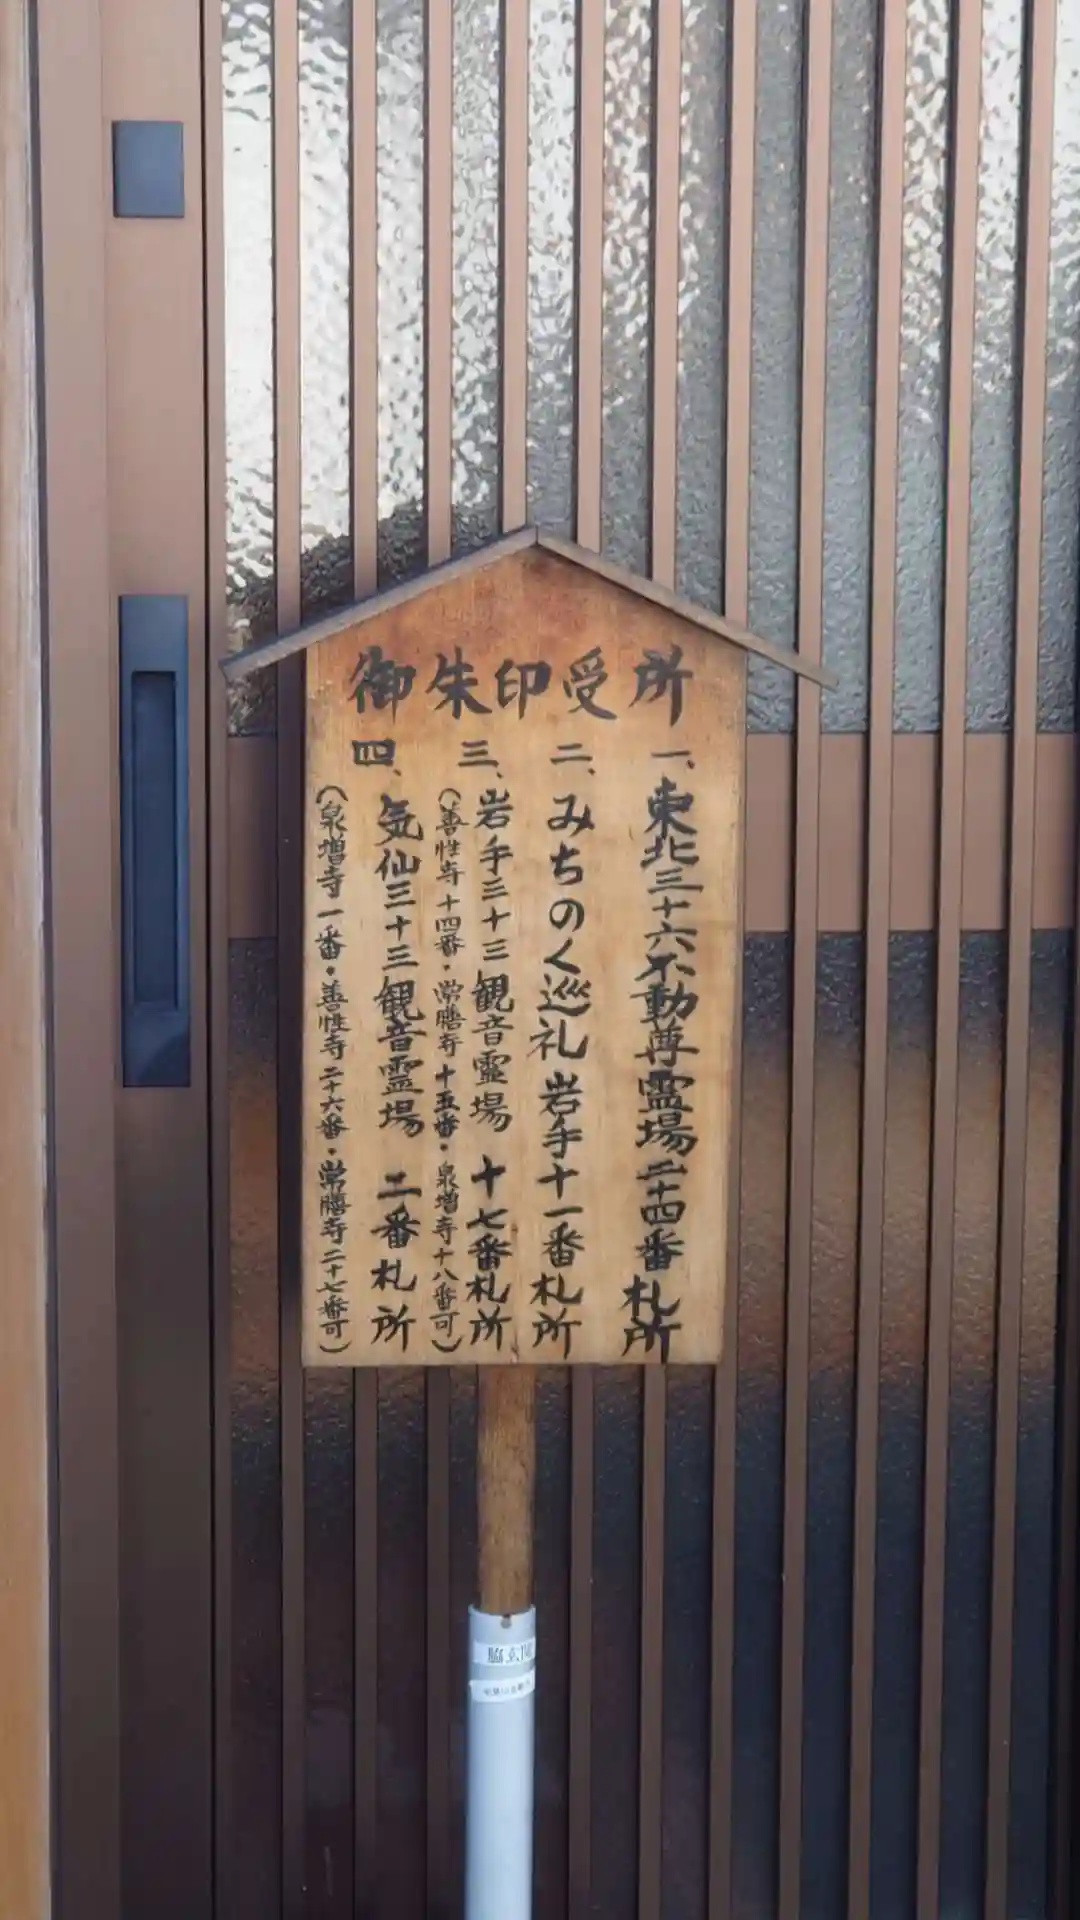 御朱印受所
一、東北三十六不動尊霊場二十四番札所
二、みちのく巡礼 岩手十一番札所
三、岩手三十三観音霊場 十七番札所
(善性寺十四番・常膳寺十五番・泉増寺十八番可)
四、気仙三十三観音霊場 二番札所
(泉増寺一番・善性寺二十六番・常膳寺二十七番可)
脇玄関